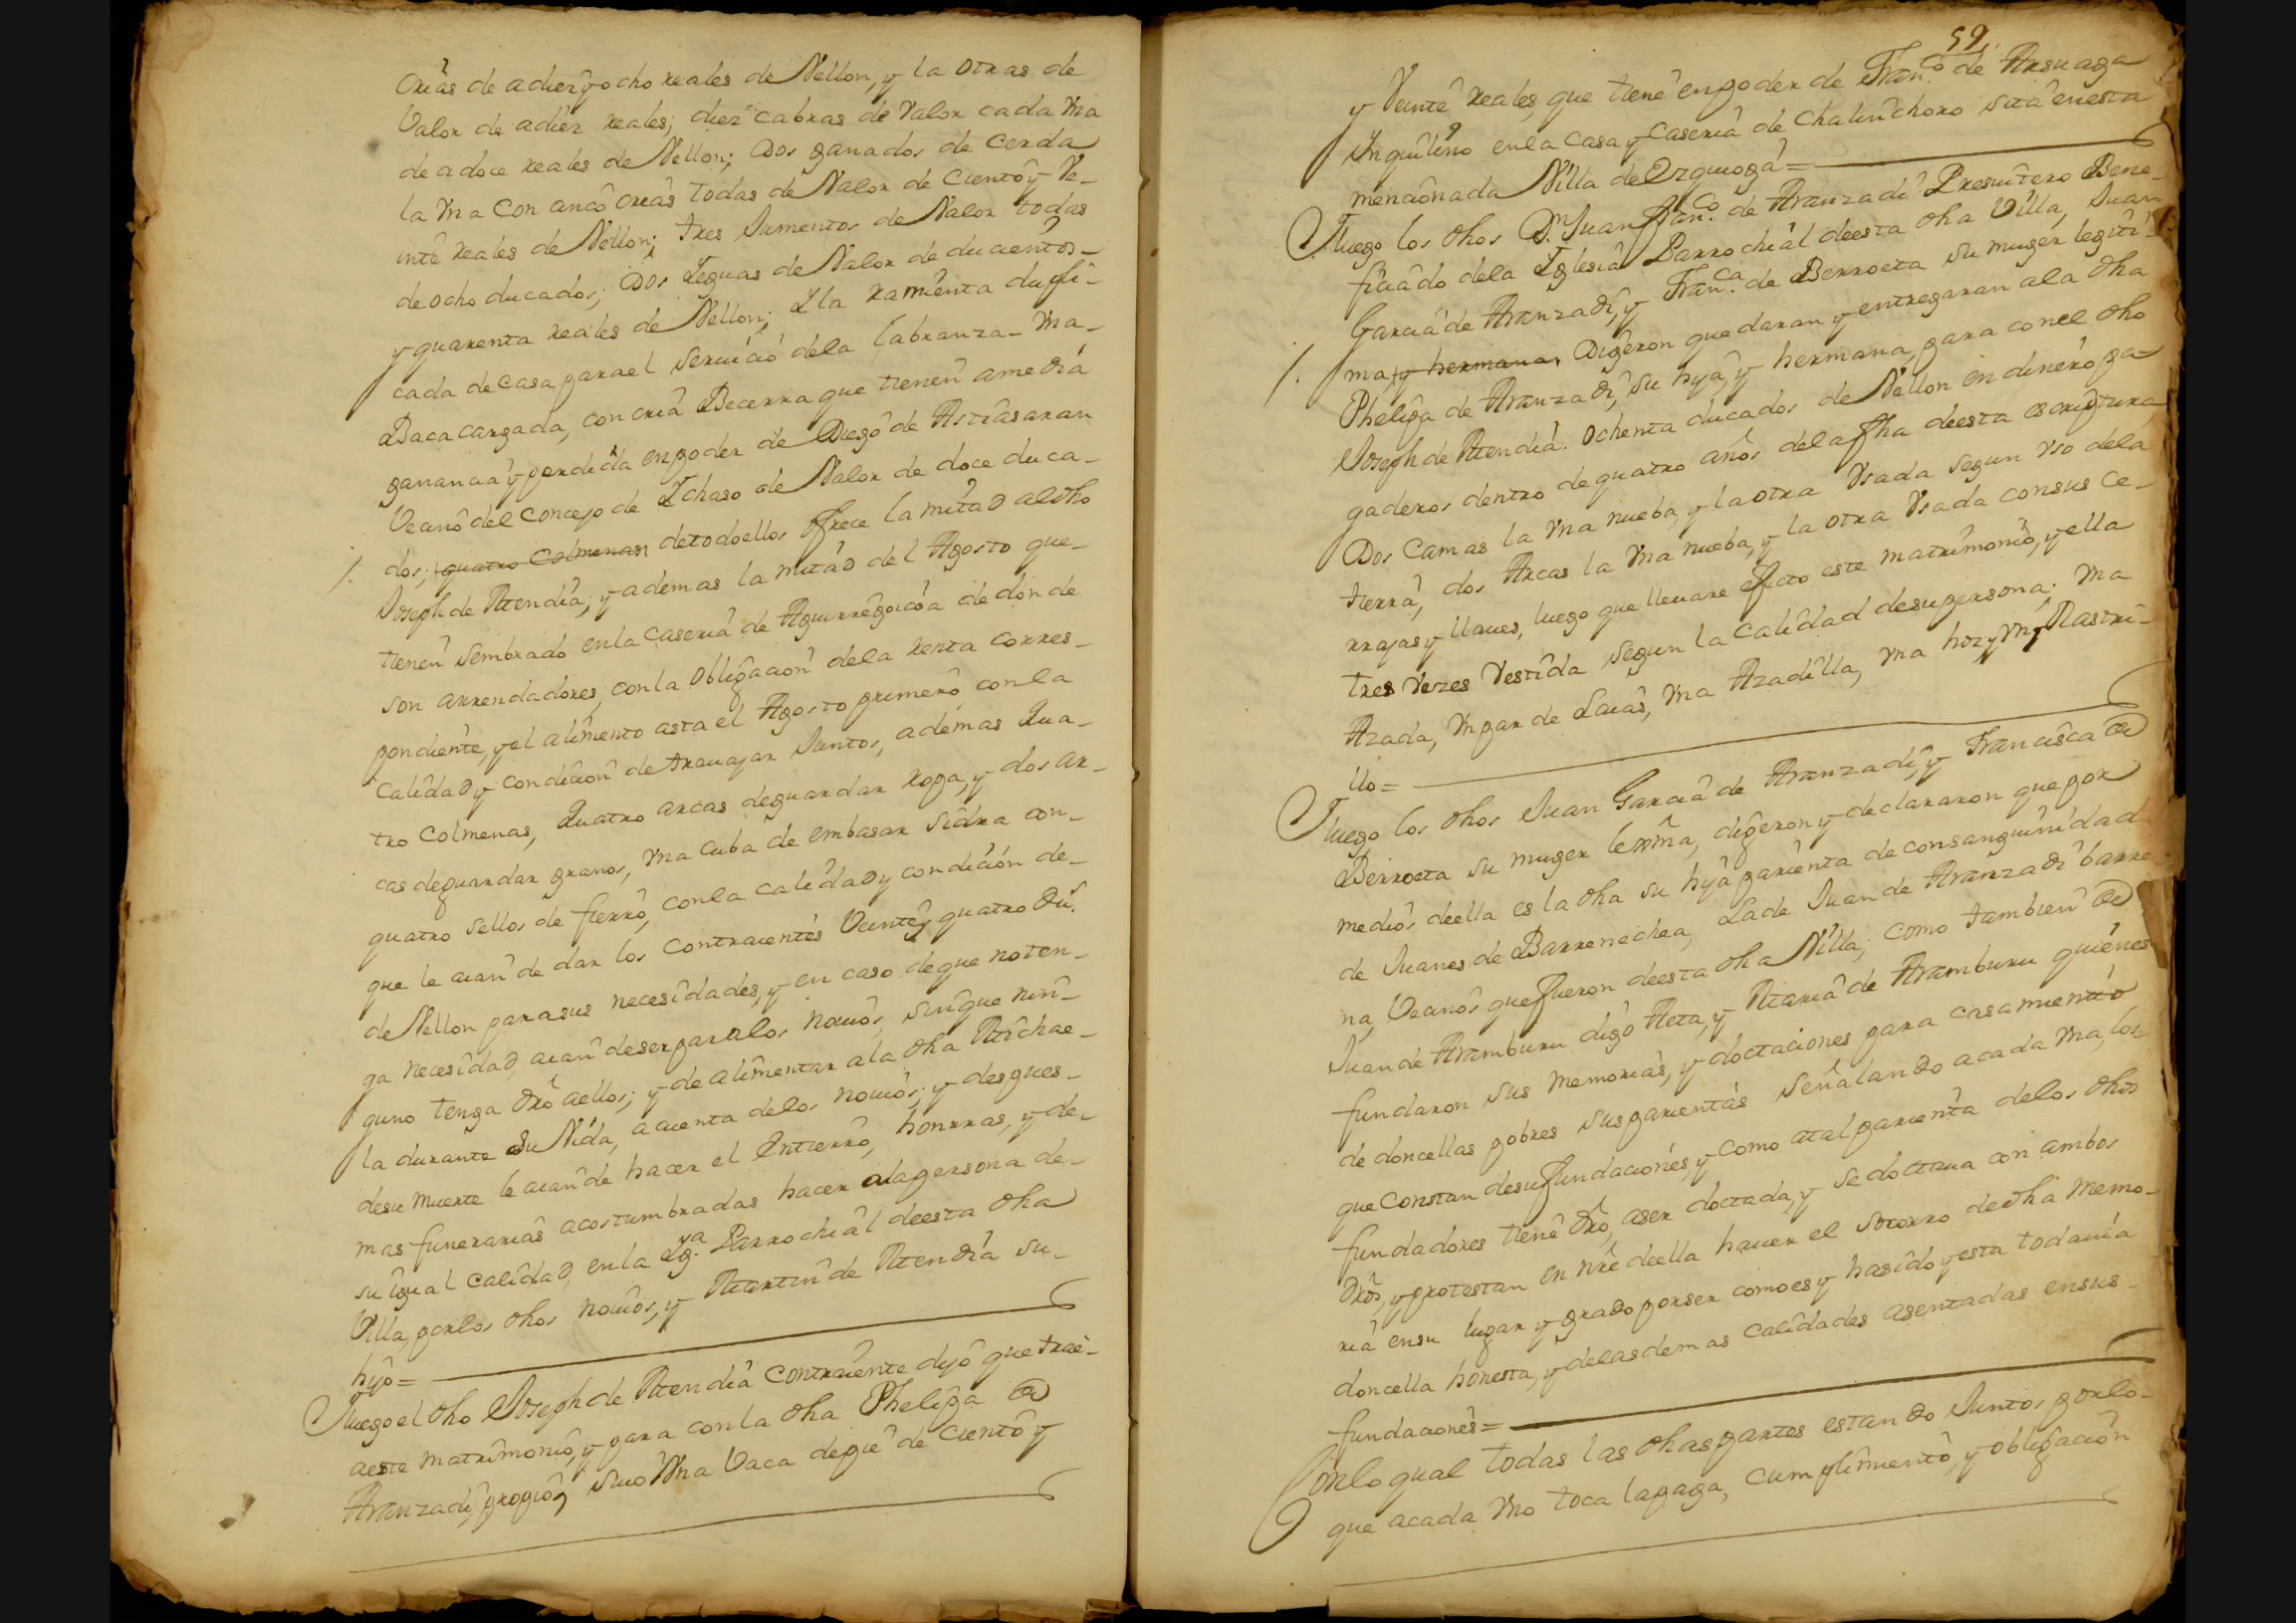 crias de adiez y ocho reales de Vellon, y la otras de
Valor de adiez reales; diez cabras de Valor cada Vna
de a doce reales de Vellon; Dos ganados de Cerda
la Vna Con cinco crias todas de Valor de Ciento y Ve-
inte reales de Vellon; tres Jumentos de Valor todas
de ocho ducados; Dos Yeguas de Valor de ducientos-
y quarenta reales de Vellon; Y la ramienta dufi-
cada de Casa para el seruicio dela labranza- Vna-
Baca cargada, con cria Becerra que tienen amedia
ganancia y perdida en poder de Diego de Astiasaran
Vecino del Concejo de Ychaso de Valor de doce duca-
/. dos; quatro Colmenas; detodo ellos ofrece la mitad al dho
Joseph de Mendia; y ademas la mitad del Agosto que-
tienen sembrado en la Caseria de Aguirregoicoa de donde
son arrendadores, con la Obligacion dela renta corres-
pondiente, y el alimento asta el Agosto primero con la
Calidad y condicion de trauajar Juntos, ademas Qua-
tro Colmenas, Quatro arcas deguardar ropa, y dos ar-
cas deguardar granos, Vna Cuba de embasar sidra con-
quatro sellos de fierro, con la calidad y condicion de-
que le aian de dar los Contraientes Veinte y quatro Du.s
de Vellon para sus necesidades, y en caso de que no ten-
ga necesidad, aian deser para los nouios, sin que nin-
guno tenga Dro aellos; y de alimentar a la dha Michae-
la durante su Vida, acuenta delos nouios; y despues-
desu muerte le aian de hacer el Entierro, honrras, y de-
mas funerarias acostumbradas hacer ala persona de-
su igual Calidad, en la Yg.ª Parrochial deesta dha
Villa, por los dhos nouios, y Martin de Mendia su-
hijo=
Y luego el dho Joseph de Mendia Contraiente dijo que trae-
aeste matrimonio, y para con la dha Phelipa de
Aranzadi, propio suio Vna Vaca depie de Ciento y
59.
y Veinte reales, que tiene en poder de Fran.co de Arsuaga
Ynquilino en la Casa y Caseria de Chalinchoro sita enesta
mencionada Villa de Ezquioga=
Y luego los dhos D.n Juan Fran.co de Aranzadi Presuitero Bene-
ficiado dela Yglesia Parrochial deesta dha Villa, Juan
Garcia de Aranzadi, y Fran.ca de Berroeta su muger legiti-
/. ma, y hermana, Digeron que daran y entregaran a la dha
Phelipa de Aranzadi, su hija, y hermana, para con el dho
Joseph de Mendia. Ochenta ducados de Vellon en dinero pa-
gaderos dentro de quatro años dela fha deesta escriptura
Dos Camas la Vna nueba, y la otra Vsada segun Vso dela
tierra, dos Arcas la Vna nueba, y la otra Vsada con sus Ce-
rrajas y llaues, luego que lleuare efecto este matrimonio, y ella
tres Vezes Vestida segun la Calidad desu persona; Vna
Azada, Vn par de Laias, Vna Azadilla, Vna hoz y Vn Rastri-
llo=
Y luego los dhos Juan Garcia de Aranzadi, y Francisca de
Berroeta su muger lexma, digeron y declararon que por
medios deella es la dha su hija parienta de consanguinidad
de Juanes de Barrenechea, Y a de Juan de Aranzadi barre
na, Vecinos que fueron deesta dha Villa; Como tambien de
Juan de Aramburu digo Aeta, y Maria de Aramburu quienes
fundaron sus memorias, y doctaciones para casamiento
de doncellas pobres sus parientas señalando acada Vna, los
que Constan desu fundaciones, y como atal parienta delos dhos
fundadores tiene Dro, aser doctada, y se doctaua con ambos
Dros, y protestan en nre deella hauer el Socorro de dha Memo-
ria en su lugar y grado por ser como es y hasido y esta todauia
doncella honesta, y delas demas Calidades asentadas ensus-
fundaciones=
Con lo qual todas las dhas partes estando Juntos por lo-
que acada Vno toca la paga, cumplimiento, y obligacion